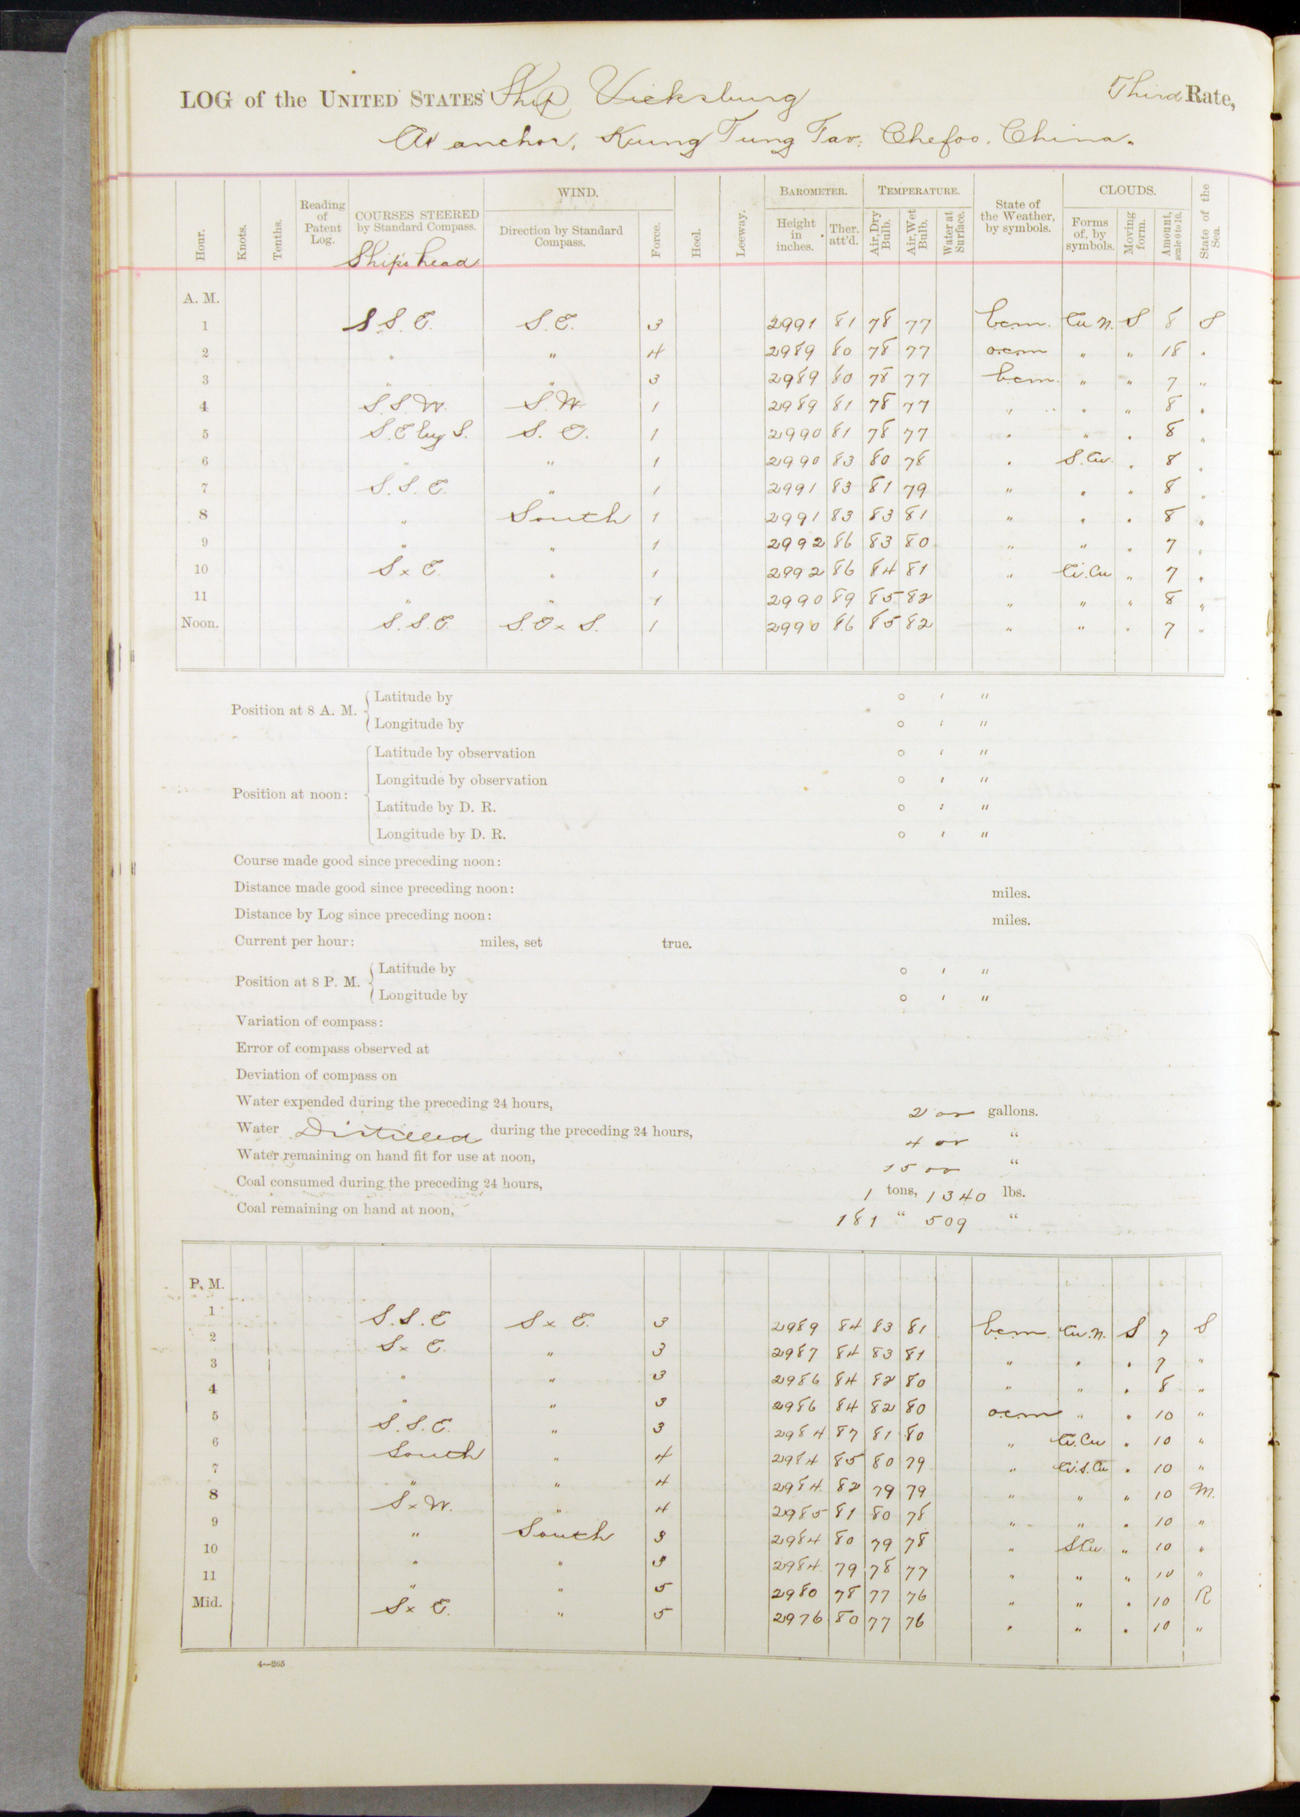 LOG of the UNITED STATES Ship Vicksburg Third Rate,
At anchor, Kung Tung Tao, Chefoo, China.
Hour. Knots. Tenths. Reading of Patent Log. COURSES STEERED by Standard Compass. WIND. Direction by Standard Compass. Force. Heel. Leeway. BAROMETER. Height in inches. Ther. att'd. TEMPERATURE. Air, Dry Bulb. Air, Wet Bulb. Water at Surface. State of the Weather, by symbols. CLOUDS. Forms of, by symbols. Moving form. Amount, scale 0 to 10. State of the Sea.
Ship's head
A. M.
1 S.S.E. S.E. 3 2991 81 78 77 bcm. Cu.N. S 8 S
2 " " 4 2989 80 78 77 ocm " " 18 "
3 " " 3 2989 80 78 77 bcm. " " 7 "
4 S.S.W. S.W. 1 2989 81 78 77 " " " 8 "
5 S.E by S. S.E. 1 2990 81 78 77 " " " 8 "
6 " " 1 2990 83 80 78 " S.Cu. " 8 "
7 S.S.E. " 1 2991 83 81 79 " " " 8 "
8 " South 1 2991 83 83 81 " " " 8 "
9 " " 1 2992 86 83 80 " " " 7 "
10 S x E. " 1 2992 86 84 81 " Ci.Cu " 7 "
11 " " 1 2990 89 85 82 " " " 8 "
Noon. S.S.E S.E x S. 1 2990 86 85 82 " " " 7 "
Position at 8 A. M. { Latitude by ° ′ ″
Longitude by ° ′ ″
Position at noon: { Latitude by observation ° ′ ″
Longitude by observation ° ′ ″
Latitude by D. R. ° ′ ″
Longitude by D. R. ° ′ ″
Course made good since preceding noon:
Distance made good since preceding noon: miles.
Distance by Log since preceding noon: miles.
Current per hour: miles, set true.
Position at 8 P. M. { Latitude by ° ′ ″
Longitude by ° ′ ″
Variation of compass:
Error of compass observed at
Deviation of compass on
Water expended during the preceding 24 hours, 200 gallons.
Water Distilled during the preceding 24 hours, 400 "
Water remaining on hand fit for use at noon, 1500 "
Coal consumed during the preceding 24 hours, 1 tons, 1340 lbs.
Coal remaining on hand at noon, 181 " 509 "
P. M.
1 S.S.E S x E. 3 2989 84 83 81 bcm. Cu.N. S 7 S
2 S x E. " 3 2987 84 83 81 " " " 7 "
3 " " 3 2986 84 82 80 " " " 8 "
4 " " 3 2986 84 82 80 ocm " " 10 "
5 S.S.E. " 3 2984 87 81 80 " Ci.Cu " 10 "
6 South " 4 2984 85 80 79 " Ci.S.Cu " 10 "
7 " " 4 2984 82 79 79 " " " 10 M.
8 S x W. " 4 2985 81 80 78 " " " 10 "
9 " South 3 2984 80 79 78 " S.Cu. " 10 "
10 " " 3 2984 79 78 77 " " " 10 "
11 " " 5 2980 78 77 76 " " " 10 R
Mid. S x E. " 5 2976 80 77 76 " " " 10 "
4—265